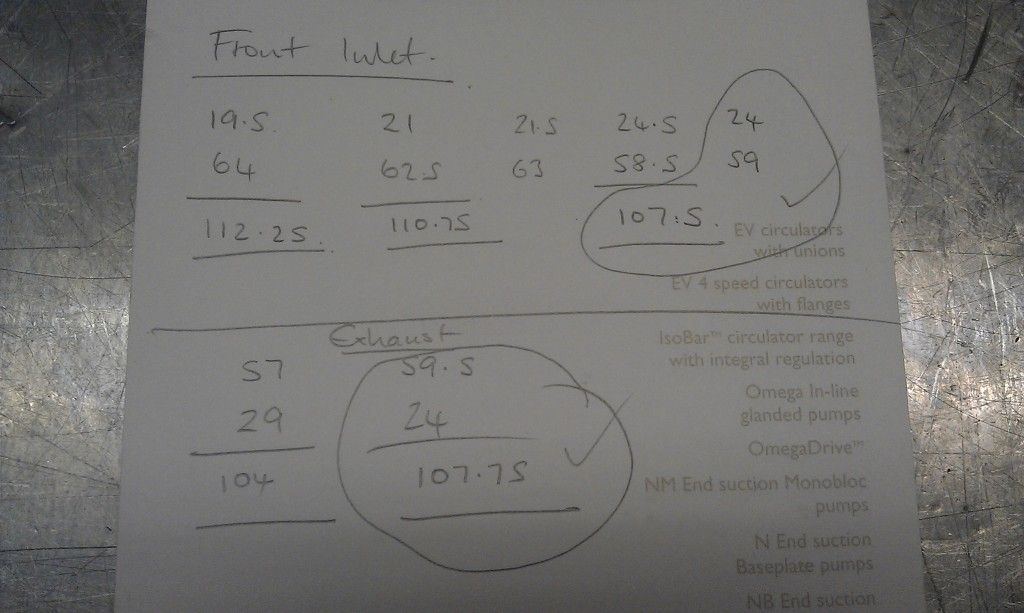 Front Inlet.
19.5 21 21.5 24.5 24
64 62.5 63 58.5 59
112.25 110.75 107.5
EV circulators
with unions
EV 4 speed circulators
with flanges
Exhaust
IsoBar™ circulator range
with integral regulation
57 59.5
Omega In-line
glanded pumps
29 24
OmegaDrive™
104 107.75
NM End suction Monobloc
pumps
N End suction
Baseplate pumps
NB End suction